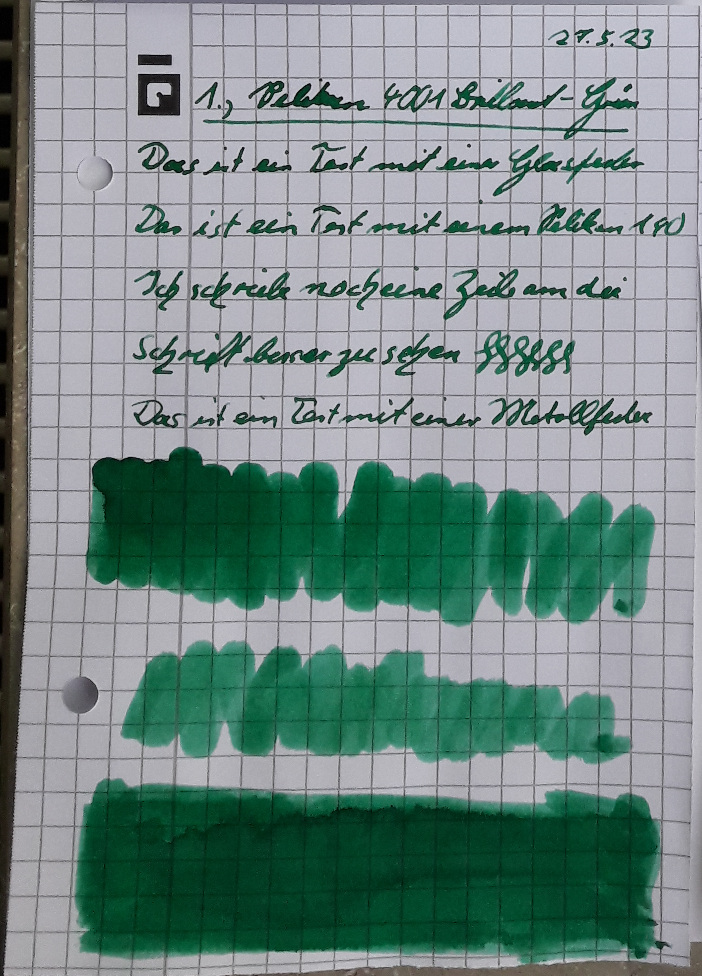 27.5.23
iQ
1., Pelikan 4001 Brillant-Grün
Das ist ein Test mit einer Glasfeder
Das ist ein Test mit einem Pelikan 140
Ich schreibe noch eine Zeile um die
Schrift besser zu sehen §§§§§§
Das ist ein Test mit einer Metallfeder